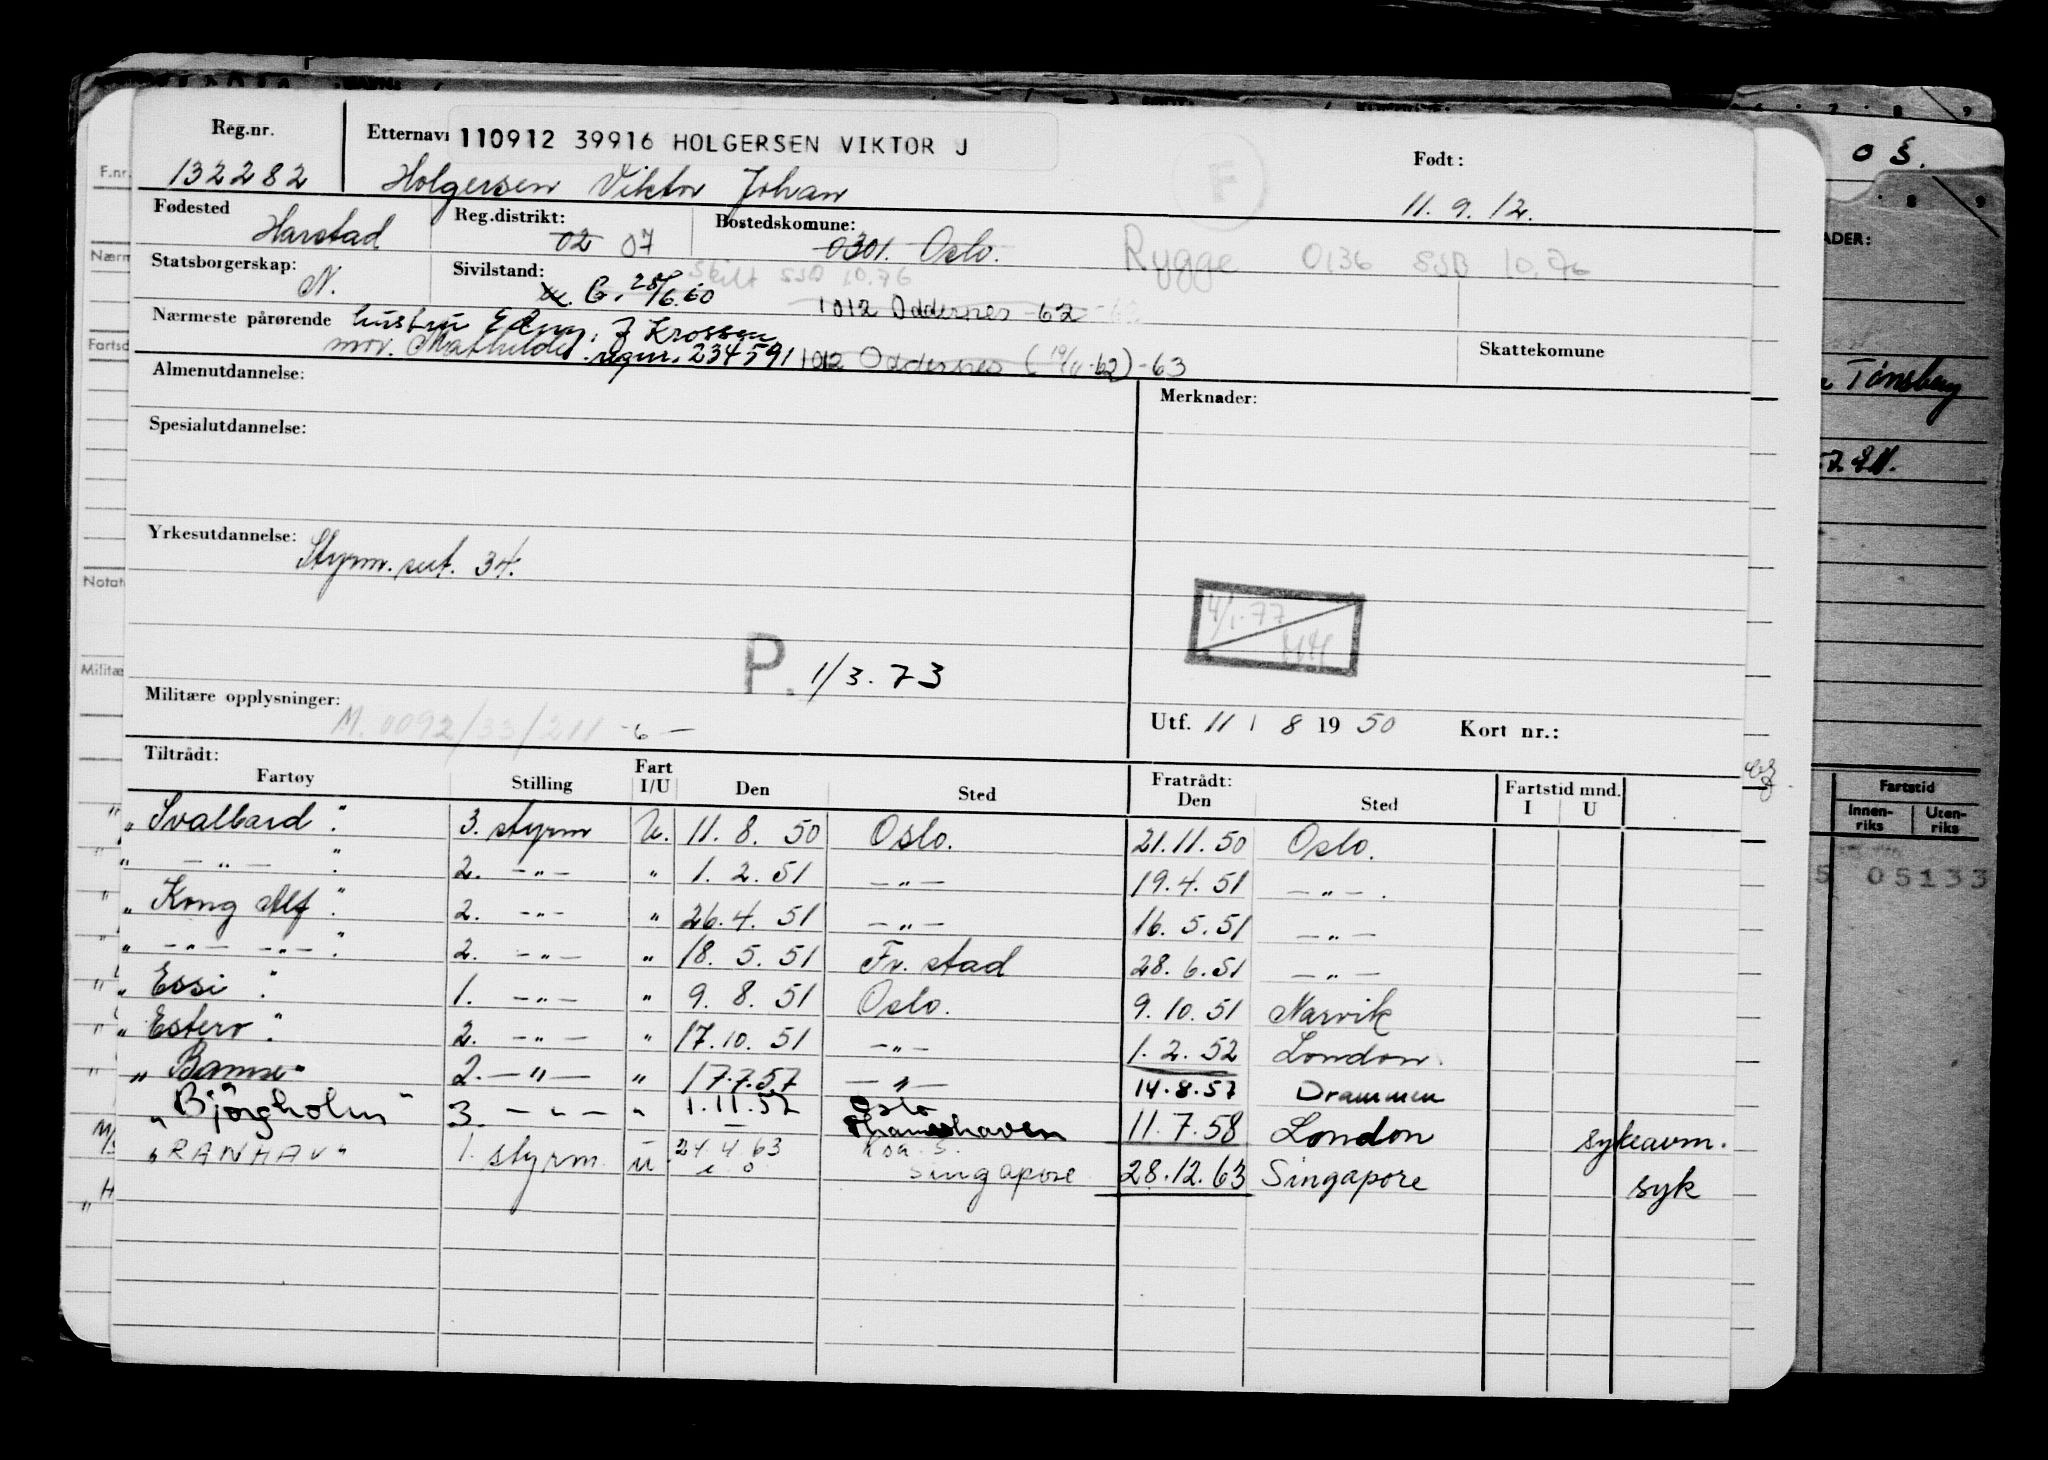 Reg.nr.
132282
Etternavn 110912 39916 HOLGERSEN VIKTOR J
Holgersen Viktor Johan
F
Født:
11. 9. 12.
Fødested
Harstad
Reg.distrikt:
02 07
Bostedskomune:
0301. Oslo.
Rygge 0136 SSB 10.76
Statsborgerskap:
N.
Sivilstand:
G. 28/6.60
Skilt SSB 10.76
1012 Oddernes -62
Nærmeste pårørende
hustru Edny: J Krossen
mor. Mathilde regnr. 234591
1012 Oddernes (19/11-62)-63
Skattekomune
Almenutdannelse:
Merknader:
Spesialutdannelse:
Yrkesutdannelse:
Styrm. sert. 34.
4/1-77
P. 1/3. 73
Militære opplysninger:
M. 0092/33/211 -6-
Utf. 11 / 8 19 50 Kort nr.:
Tiltrådt:
Fartøy Stilling Fart I/U Den Sted Fratrådt: Den Sted Fartstid mnd. I U
"Svalbard". 3. styrm U. 11. 8. 50 Oslo. 21.11.50 Oslo.
" —"— ". 2. —"— " 1. 2. 51 —"— 19.4.51 —"— .
"Kong Alf". 2. —"— " 26.4. 51 —"— 16. 5.51 —"—
" —"— —"— ". 2. —"— " 18. 5. 51 Fr. stad 28. 6.51 —"—
"Essi" 1. —"— " 9. 8. 51 Oslo. 9. 10. 51 Narvik
"Estero". 2. —"— " 17.10. 51 —"— 1. 2. 52 London.
"Bamse" 2. —"— " 17.7.57 —"— 14.8.57 Drammen
"Bjørgholm" 3. —"— " 1.11.57 Oslo 11.7.58 London sykeavm.
Thameshaven
"RANHAV" 1. styrm. u 24 4 63 Singapore 28.12.63 Singapore syk
F.nr.
Nærm
Fartsd
Notat
Militæ
M/S
"H
O S.
ADER:
Tønsberg
Fartstid
Innen-
riks
Uten-
riks
5 05133